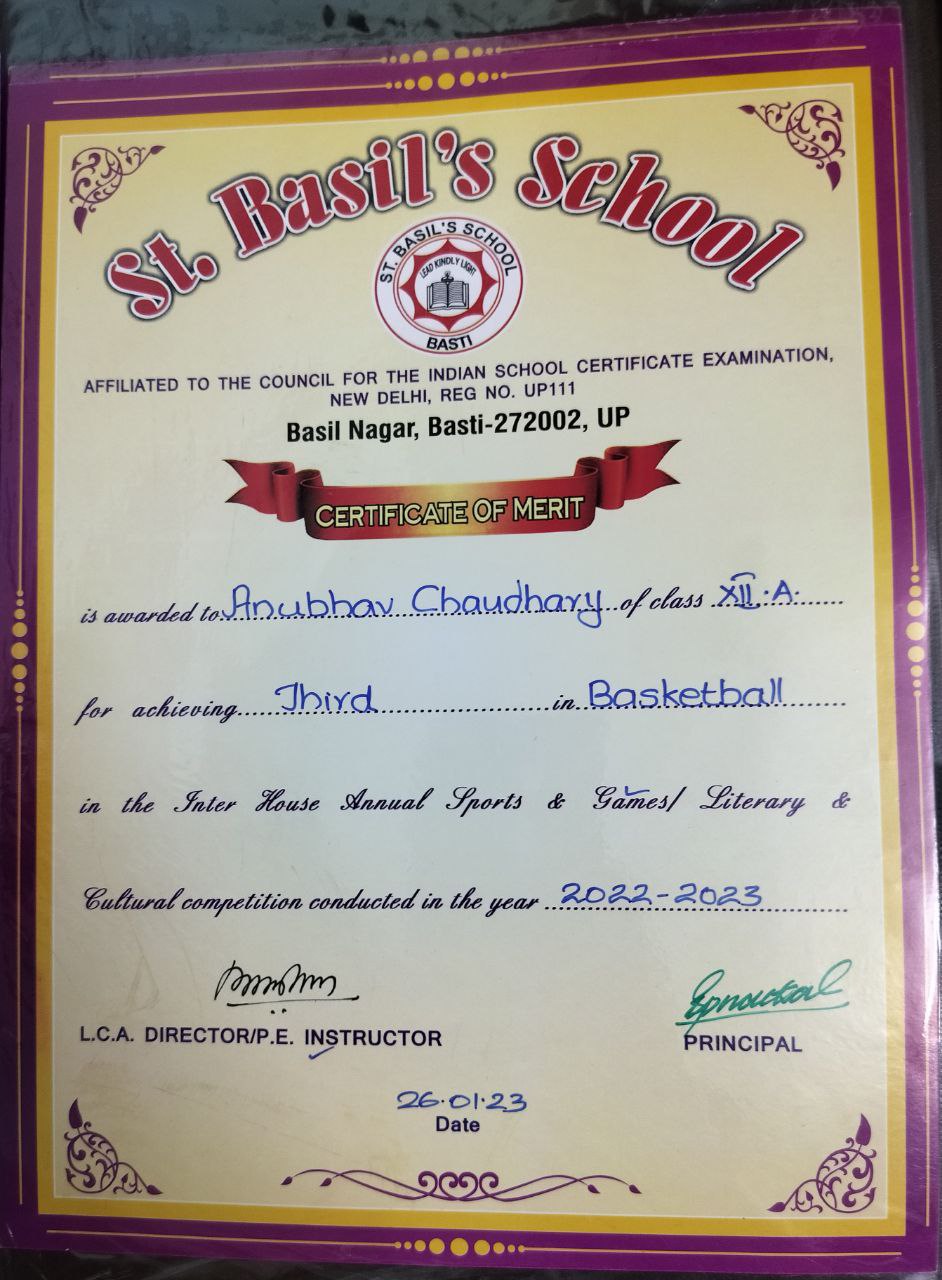 St. Basil's School
ST. BASIL'S SCHOOL
LEAD KINDLY LIGHT
BASTI
AFFILIATED TO THE COUNCIL FOR THE INDIAN SCHOOL CERTIFICATE EXAMINATION,
NEW DELHI, REG NO. UP111
Basil Nagar, Basti-272002, UP
CERTIFICATE OF MERIT
is awarded to Anubhav Chaudhary of class XII.A.
for achieving Third in Basketball
in the Inter House Annual Sports & Games/ Literary &
Cultural competition conducted in the year 2022-2023
L.C.A. DIRECTOR/P.E. INSTRUCTOR
PRINCIPAL
26.01.23
Date